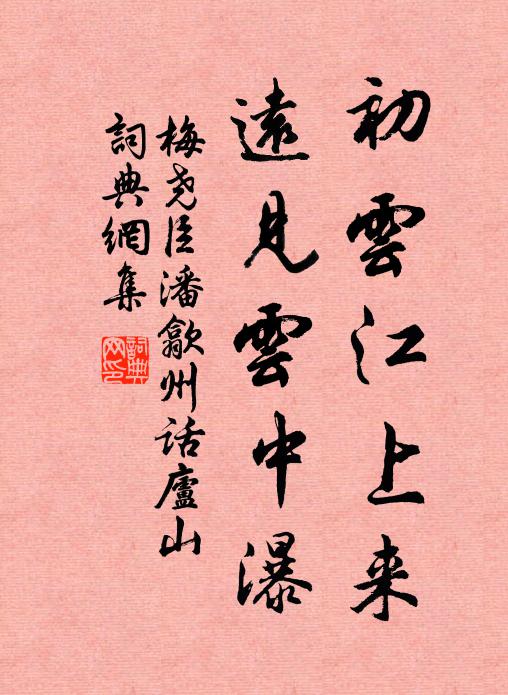 初雲江上来
遠見雲中瀑
梅尧臣潘歙州话廬山
詞典網集
詞典網印